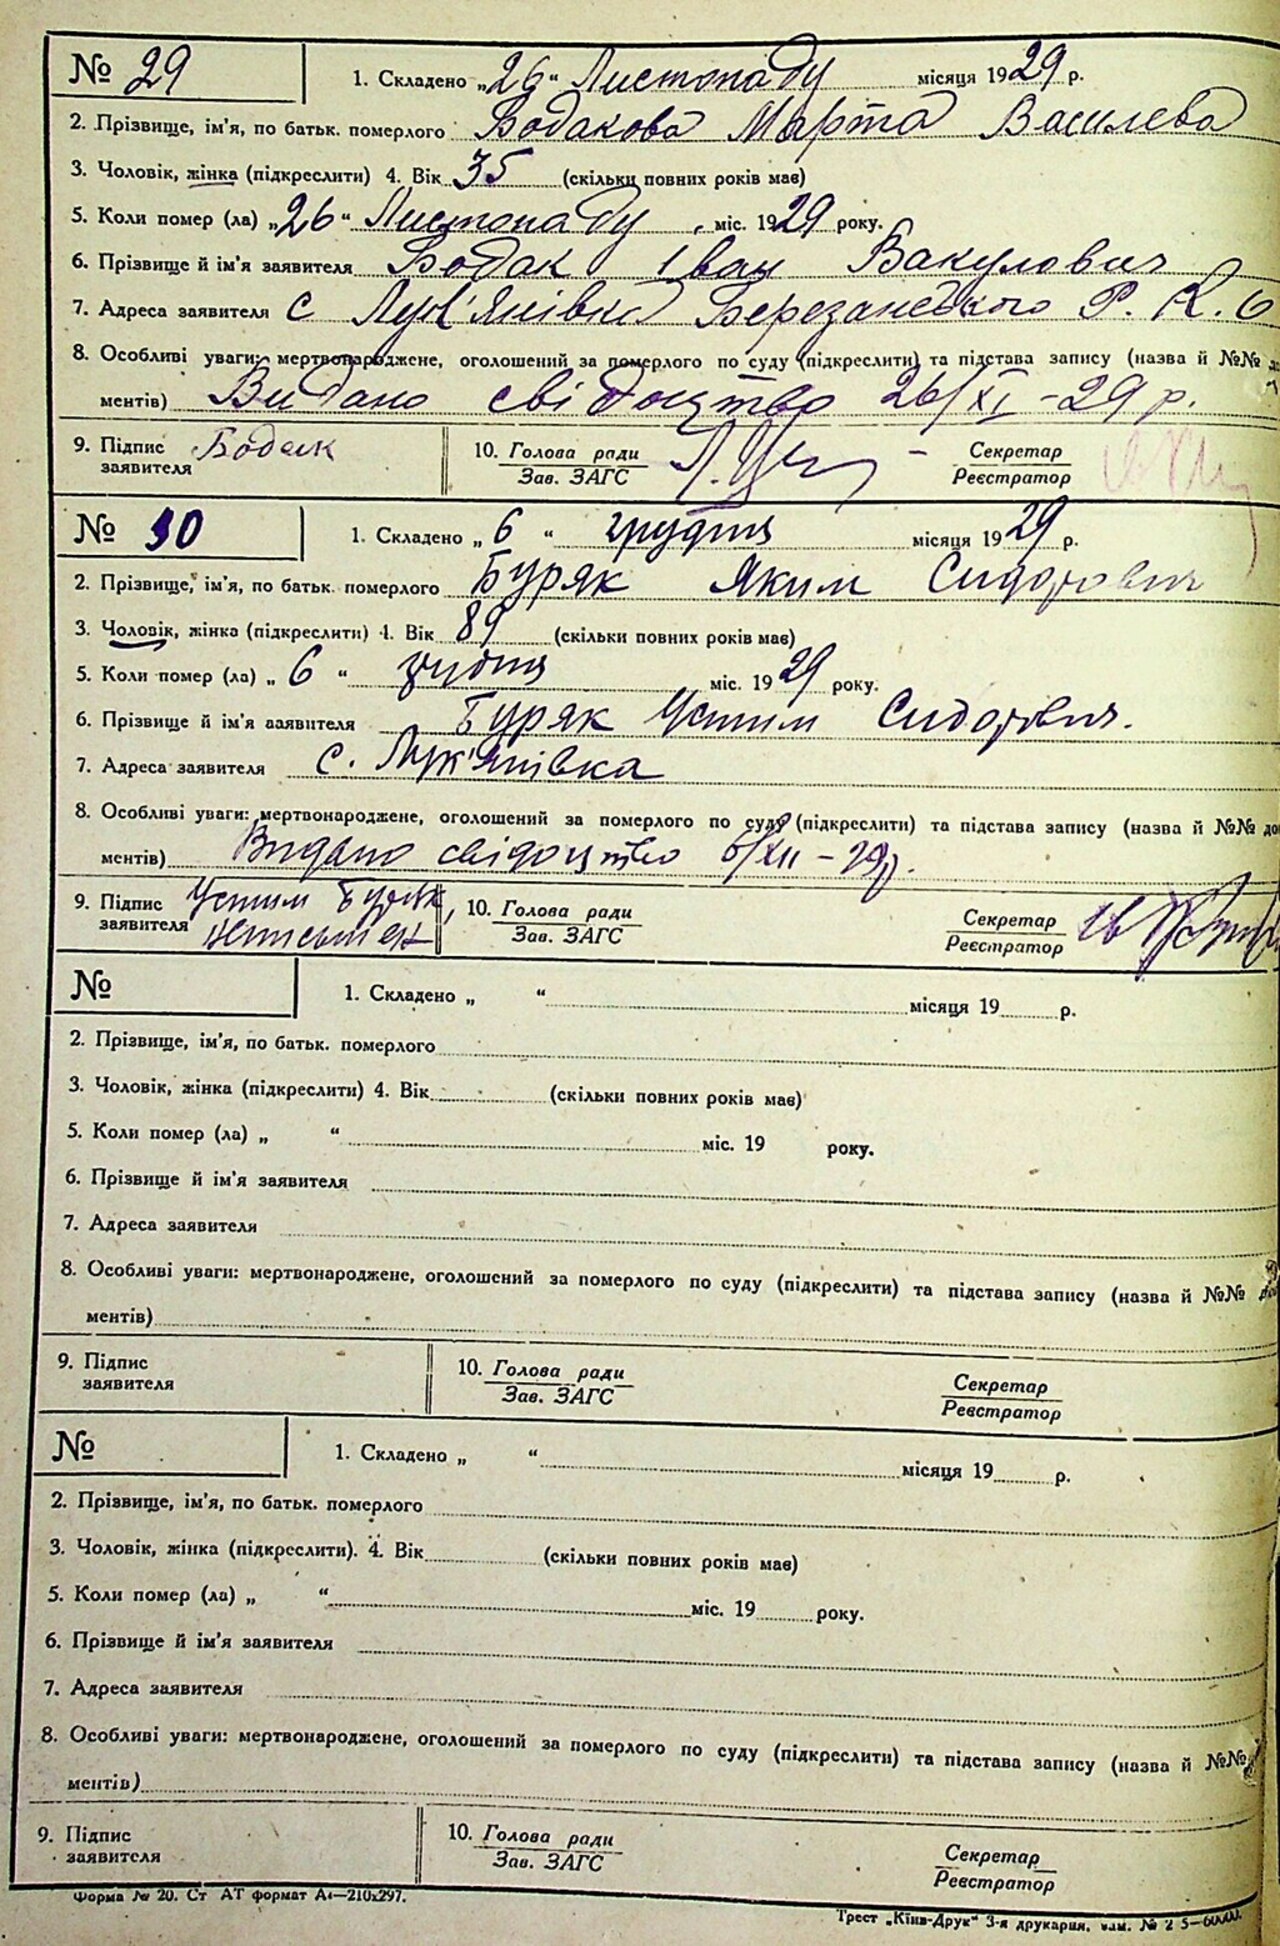 № 29 1. Складено „26“ Листопаду місяця 1929 р.
2. Прізвище, ім'я, по батьк. померлого Бодакова Марта Василева
3. Чоловік, жінка (підкреслити) 4. Вік 35 (скільки повних років має)
5. Коли помер (ла) „26“ Листопаду міс. 1929 року.
6. Прізвище й ім'я заявителя Бодак Іван Вакулович
7. Адреса заявителя с Лук'янівка Березанського Р. К. О
8. Особливі уваги: мертвонароджене, оголошений за померлого по суду (підкреслити) та підстава запису (назва й №№
ментів) Видано свідоцтво 26/XI -29 р.
9. Підпис заявителя Бодак 10. Голова ради Зав. ЗАГС Секретар Реєстратор
№ 30 1. Складено „6“ грудня місяця 1929 р.
2. Прізвище, ім'я, по батьк. померлого Буряк Яким Сидорович
3. Чоловік, жінка (підкреслити) 4. Вік 89 (скільки повних років має)
5. Коли помер (ла) „6“ грудня міс. 1929 року.
6. Прізвище й ім'я заявителя Буряк Устим Сидорович.
7. Адреса заявителя с. Лук'янівка
8. Особливі уваги: мертвонароджене, оголошений за померлого по суду (підкреслити) та підстава запису (назва й №№ до
ментів) Видано свідоцтво 6/XII - 29р.
9. Підпис заявителя Устим Буряк, 10. Голова ради Зав. ЗАГС Секретар Реєстратор
№ 1. Складено „ “ місяця 19 р.
2. Прізвище, ім'я, по батьк. померлого
3. Чоловік, жінка (підкреслити) 4. Вік (скільки повних років має)
5. Коли помер (ла) „ “ міс. 19 року.
6. Прізвище й ім'я заявителя
7. Адреса заявителя
8. Особливі уваги: мертвонароджене, оголошений за померлого по суду (підкреслити) та підстава запису (назва й №№
ментів)
9. Підпис заявителя 10. Голова ради Зав. ЗАГС Секретар Реєстратор
№ 1. Складено „ “ місяця 19 р.
2. Прізвище, ім'я, по батьк. померлого
3. Чоловік, жінка (підкреслити). 4. Вік (скільки повних років має)
5. Коли помер (ла) „ “ міс. 19 року.
6. Прізвище й ім'я заявителя
7. Адреса заявителя
8. Особливі уваги: мертвонароджене, оголошений за померлого по суду (підкреслити) та підстава запису (назва й №№
ментів)
9. Підпис заявителя 10. Голова ради Зав. ЗАГС Секретар Реєстратор
Форма № 20. Ст АТ формат А4—210х297.
Трест „Київ-Друк“ 3-я друкарня.